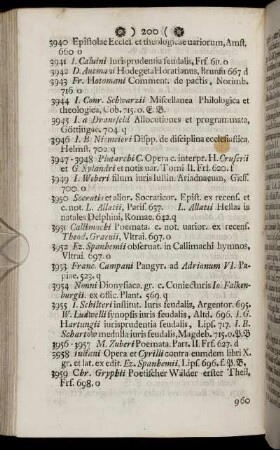 ☽ 200 ☾
3940 Epistolae Eccles. et theologicae variorum, Amst.
660 o
3941 I. Caluini Iurisprudentia feudalis, Frf. 611 o
3942 D. Autmani Hodegeta Horatianus, Brunsu 667 d
3943 Fr. Hotomani Comment. de pactis, Norimb.
716 o
3944 I. Conr. Schwarzii Miscellanea Philologica et
theologica, Cob. 715. o. E. B.
3945 I. a Dransfeld Allocutiones et programmata,
Göttingae, 704 q
3946 I. B. Niemeieri Dispp. de disciplina ecclesiastica,
Helmst. 702 q
3947-3948 Plutarchi C. Opera c. interpr. H. Cruserii
et G. Xylandri et notis uar. Tomi II. Frf. 620. f
3949 I. Weberi filum iuris siue Ariadnaeum, Giess.
700. o
3950 Socratis et alior. Socraticor. Epist. ex recens. et
c. not. L. Allatii, Paris. 637. L. Allatii Hellas in
natales Delphini, Romae. 642. q
3951 Callimachi Poemata. c. not. uarior. ex recens.
Theod. Graeuii, Vltrai. 697. o
3952 Ez. Spanhemii obseruat. in Callimachi hymnos,
Vltrai. 697. o
3953 Franc. Campani Pangyr. ad Adrianum VI. Pa-
piae. 523. q
3954 Nonni Dionysiaca. gr. c. Coniecturis Io. Falken-
burgii. ex offic. Plant. 569. q
3955 I. Schilteri institut. Iuris feudalis, Argentor. 695.
W. Ludwelli synopsis iuris feudalis, Altd. 696. I. G.
Hartungii iurisprudentia feudalis, Lips. 717. I. B.
Schartow medulla iuris feudalis, Magdeb. 715. o. P. B.
3956-3957 M. Zuberi Poemata. Part. II. Frf. 627. d
3958 Iuliani Opera et Cyrilli contra eumdem libri X.
gr. et lat. ex edit. Ez. Spanhemii, Lips. 696. f. P. B.
3959 Chr. Gryphii Poetischer Wälder erster Theil,
Frf. 698. o
960